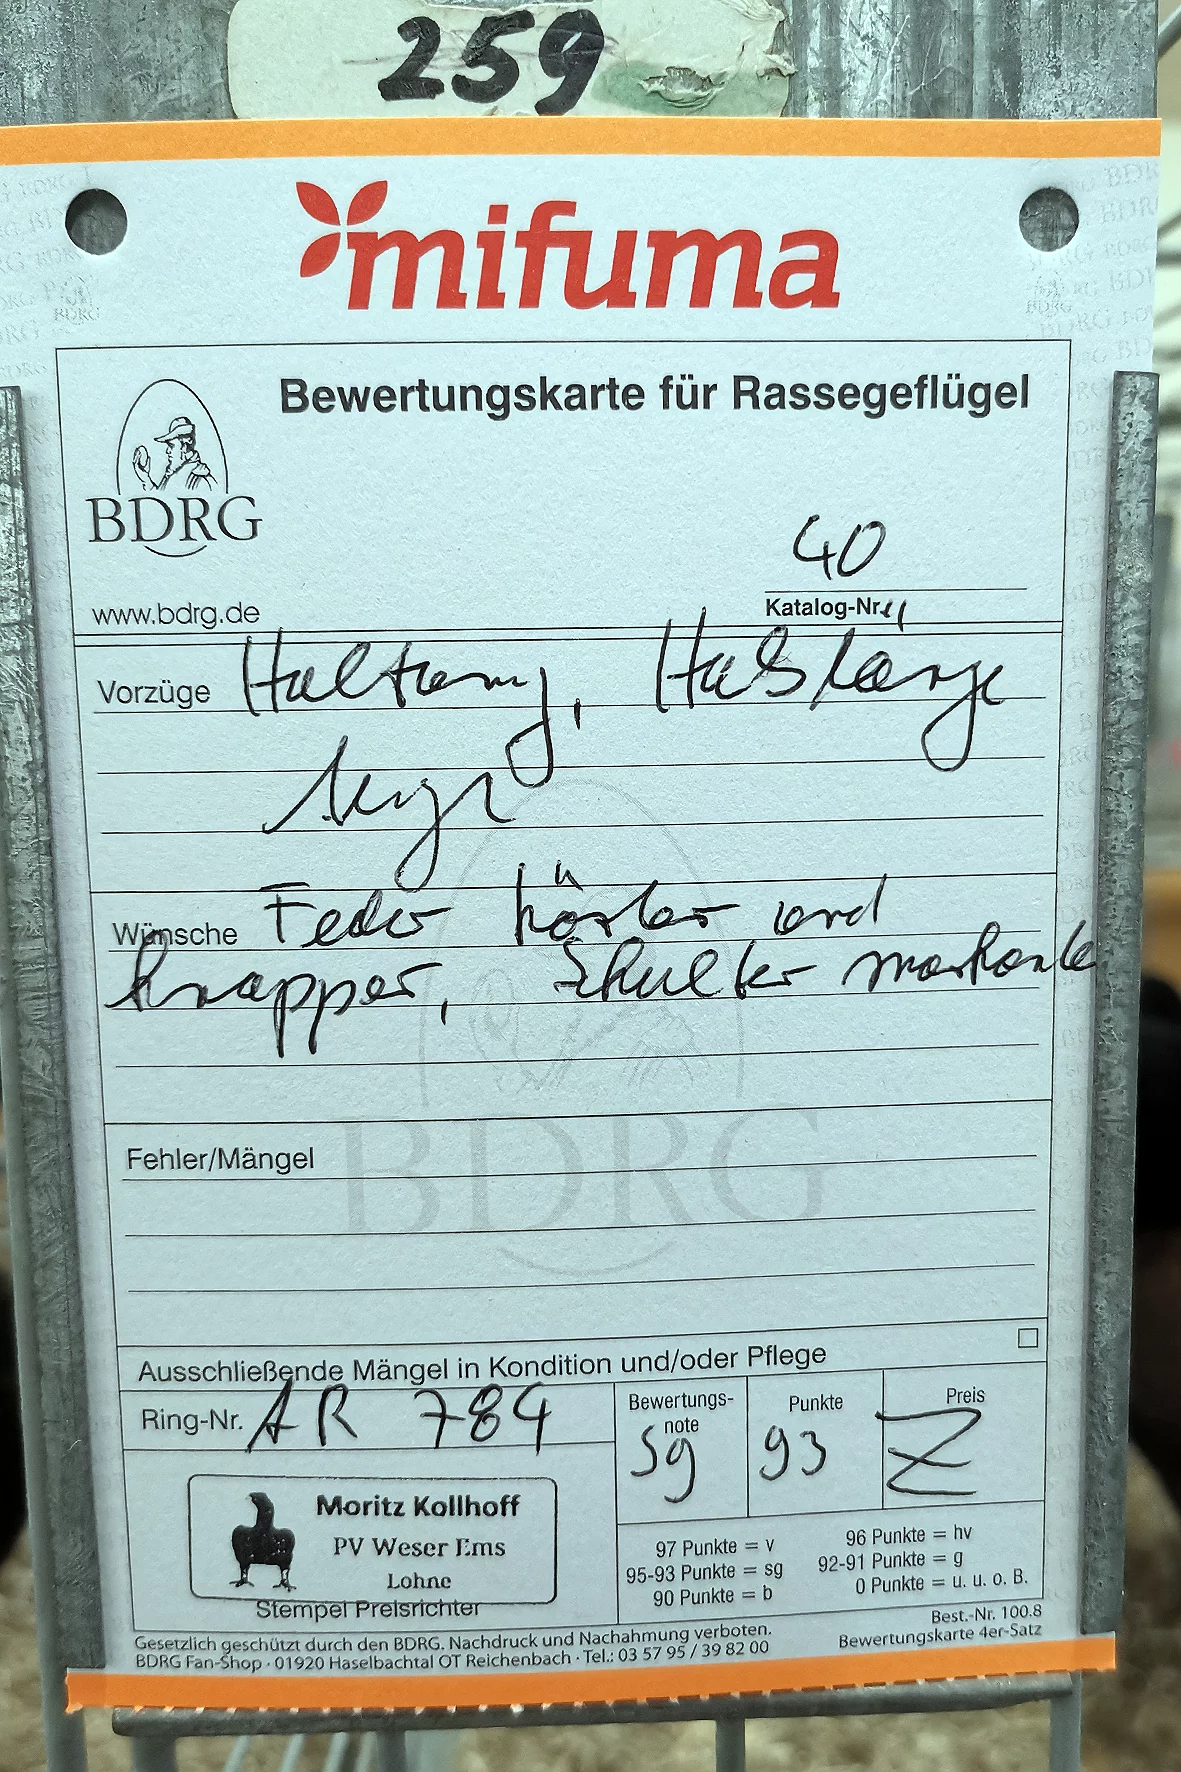 259
mifuma
Bewertungskarte für Rassegeflügel
BDRG
40
www.bdrg.de
Katalog-Nr.
Vorzüge Haltung, Halslänge
Wünsche Feder härter und
knapper, Schulter markante
BDRG
Fehler/Mängel
Ausschließende Mängel in Kondition und/oder Pflege
Ring-Nr. AR 784
Bewertungs-
note
sg
Punkte
93
Preis
Z
Moritz Kollhoff
PV Weser Ems
Lohne
Stempel Preisrichter
97 Punkte = v
96 Punkte = hv
95-93 Punkte = sg
92-91 Punkte = g
90 Punkte = b
0 Punkte = u. u. o. B.
Gesetzlich geschützt durch den BDRG. Nachdruck und Nachahmung verboten.
BDRG Fan-Shop · 01920 Haselbachtal OT Reichenbach · Tel.: 03 57 95 / 39 82 00
Best.-Nr. 100.8
Bewertungskarte 4er-Satz